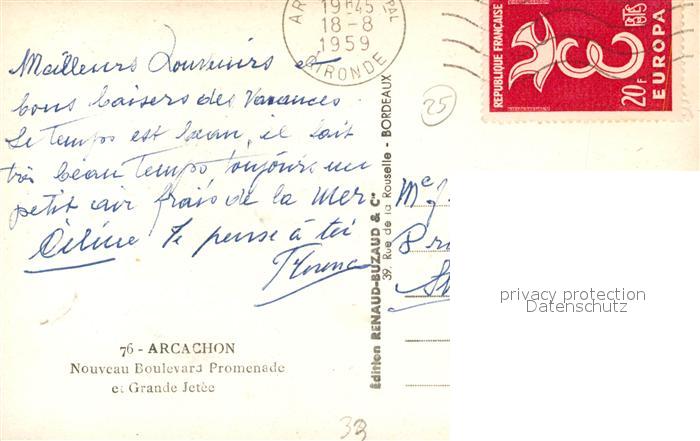 19H45
18-8
1959
GIRONDE
REPUBLIQUE FRANÇAISE
20F
EUROPA
Meilleurs Souvenirs et
bons baisers des Vacances
Le temps est beau, il fait
très beau temps, toujours un
petit air frais de la mer
Céline Je pense à toi
25
Édition RENAUD-BUZAUD & Cie
39, Rue de la Rouselle - BORDEAUX
privacy protection
Datenschutz
76 - ARCACHON
Nouveau Boulevard Promenade
et Grande Jetée
33